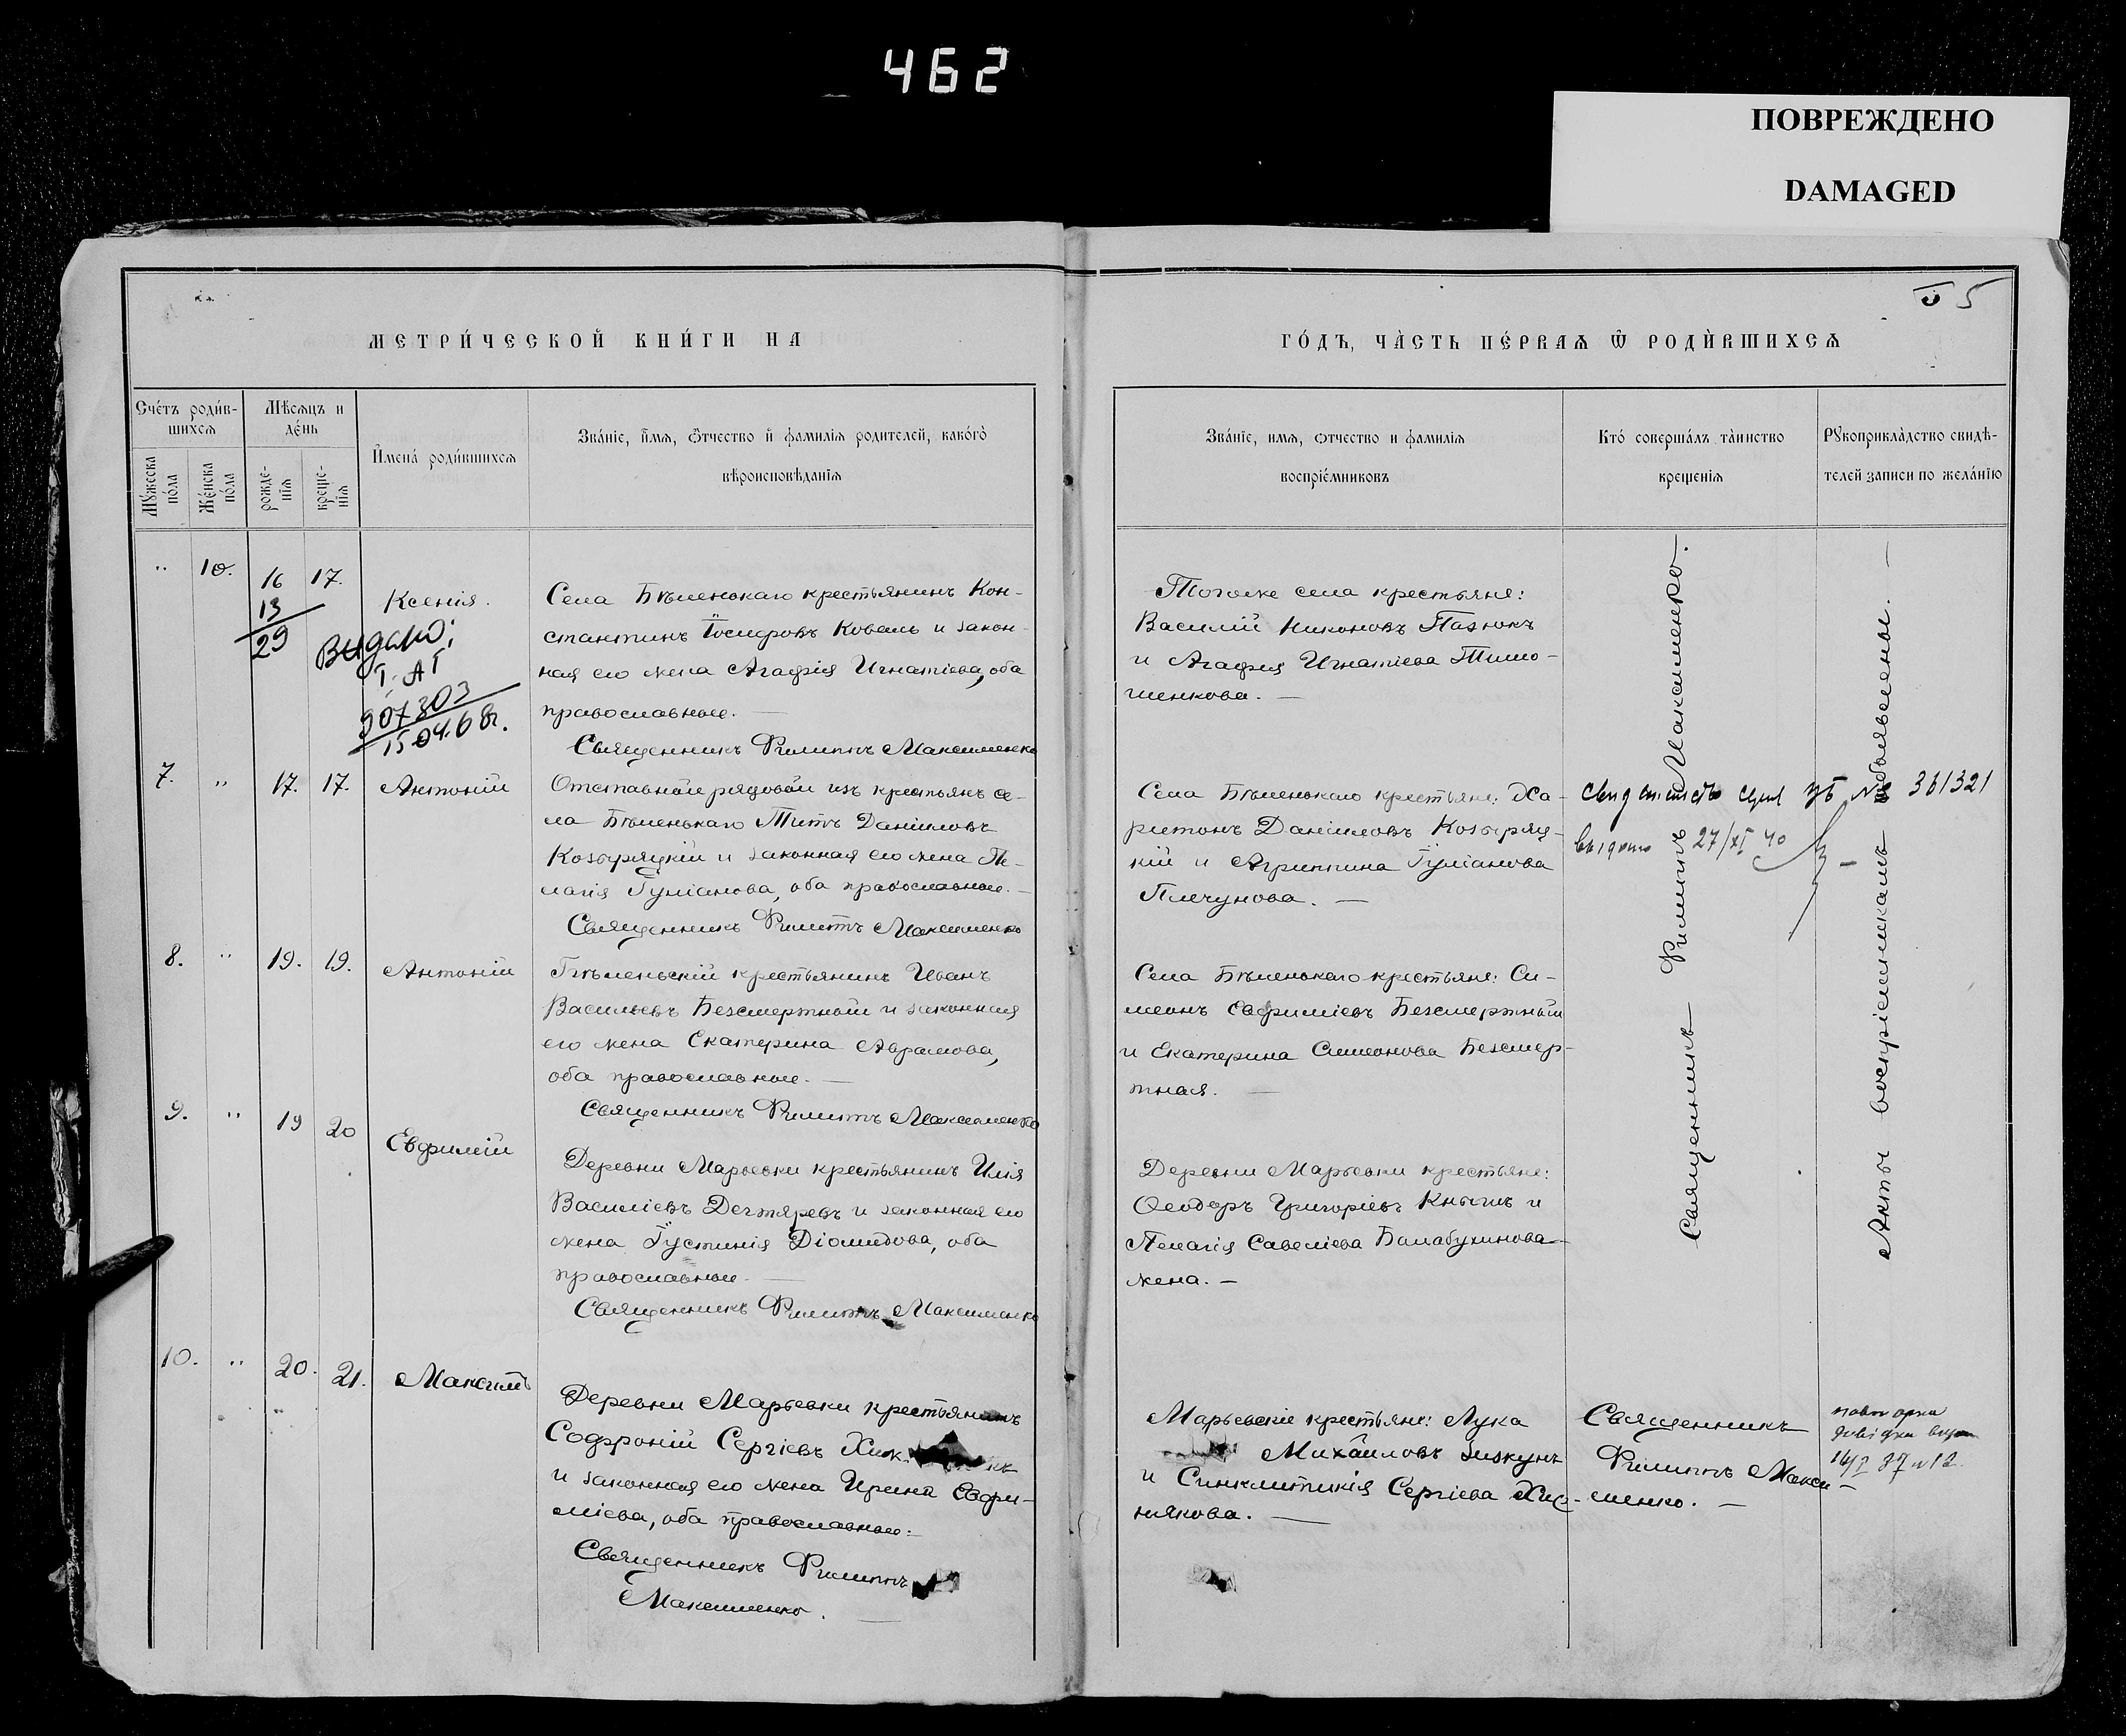 462
ПОВРЕЖДЕНО
DAMAGED
5
МЕТРИ́ЧЕСКОЙ КНИ́ГИ НА
ГО́ДЪ, ЧА̀СТЬ ПЕ́РВАѦ Ѿ РОДЍВШИХСѦ
Сче́тъ роди́в-
шихсѧ
Мѣсѧцъ и
де́нь
Мꙋ́жеска по́ла
Же́нска по́ла
рожде-
нїѧ
креще-
нїѧ
И҆мена̀ роди́вшихсѧ
Зва́нїе, и҆́мѧ, ѻ҆́тчество и҆ фамилїѧ родителей, како́гѡ
вѣроисповѣданїѧ
Зва́нїе, имѧ, ѻтчество и фамилїѧ
воспрїе́мниковъ
Кто́ соверша́лъ та̀инство
крещенїѧ
Рꙋкоприкла̀дство свидѣ-
телей записи по жела́нїю
" 10. 16 17. Ксенія.
13
29
Видано:
I. АГ
907803
15.04.68г.
Села Бѣленькаго крестьянинъ Кон-
стантинъ Іосифовъ Коваль и закон-
ная его жена Агафія Игнатіева, оба
православные. —
Священникъ Филиппъ Максименко
Тогоже села крестьяне:
Василій Никоновъ Пазюкъ
и Агафія Игнатіева Тимо-
шенкова. —
7. " 17. 17. Антоній
Отставной рядовой изъ крестьянъ се-
ла Бѣленькаго Титъ Даніиловъ
Козыряцкій и законная его жена Пе-
лагія Іуліанова, оба православные. —
Священникъ Филиппъ Максименко
Села Бѣленькаго крестьяне: Ха-
ритонъ Даніиловъ Козыряц-
кій и Агриппина Іуліанова
Плечунова. —
№ 361321
27/XI 40
8. " 19. 19. Антоній
Бѣленьскій крестьянинъ Иванъ
Васильевъ Безсмертный и законная
его жена Екатерина Аврамова,
оба православные. —
Священникъ Филиппъ Максименко
Села Бѣленькаго крестьяне: Си-
меонъ Евфиміевъ Безсмертный
и Екатерина Симеонова Безсмер-
тная. —
9. " 19 20 Евфимій
Деревни Марьевки крестьянинъ Илія
Василіевъ Дегтяревъ и законная его
жена Іустинія Діомидова, оба
православные. —
Священникъ Филиппъ Максименко
Деревни Марьевки крестьяне:
Ѳеодоръ Григоріевъ Кнышъ и
Пелагія Савеліева Балабухинова
жена. —
Священникъ Филиппъ Максименко.
Акты воспріемникамъ объявлены. —
10. " 20. 21. Максимъ
Деревни Марьевки крестьянинъ
Софроній Сергіевъ
и законная его жена Ирина Евфи-
міева, оба православные.
Священникъ Филиппъ
Максименко. —
Марьевскіе крестьяне: Лука
Михаиловъ
и Синклитикія Сергіева Хиж-
някова. —
Священникъ
Филиппъ Макси-
менко. —